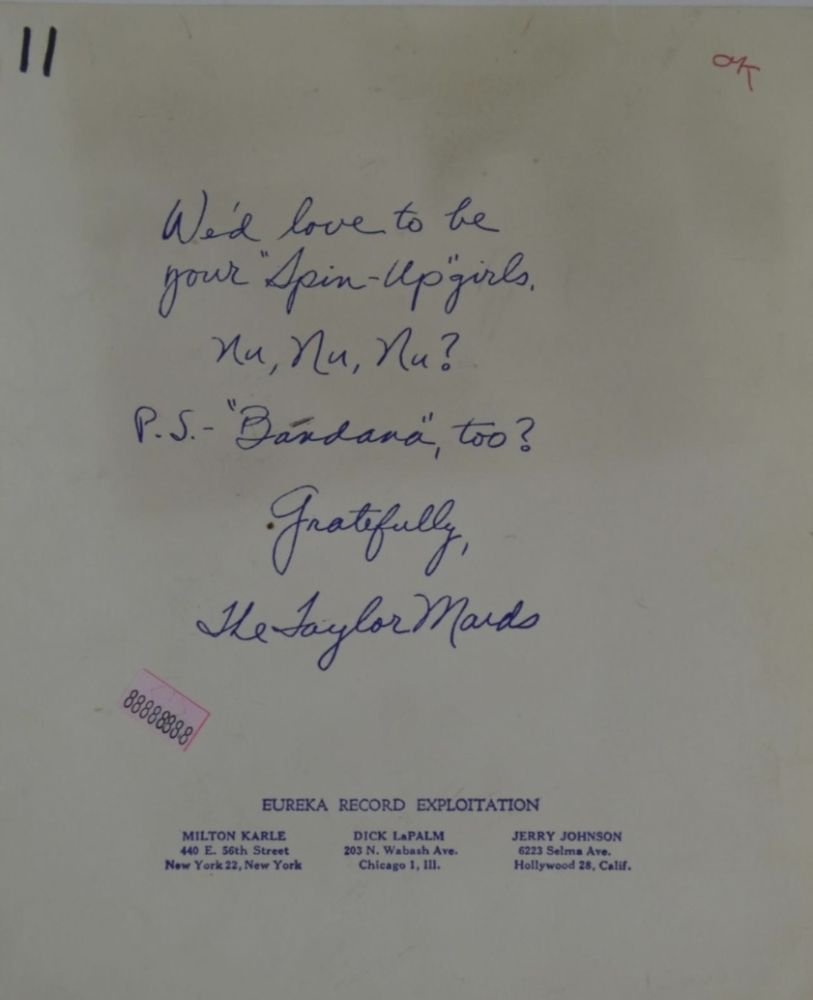 11
OK
We'd love to be
your "Spin-Up" girls.
Nu, Nu, Nu?
P.S.- "Bandana", too?
Gratefully,
The Taylor Maids
88888888
EUREKA RECORD EXPLOITATION
MILTON KARLE
440 E. 56th Street
New York 22, New York
DICK LaPALM
203 N. Wabash Ave.
Chicago 1, Ill.
JERRY JOHNSON
6223 Selma Ave.
Hollywood 28, Calif.